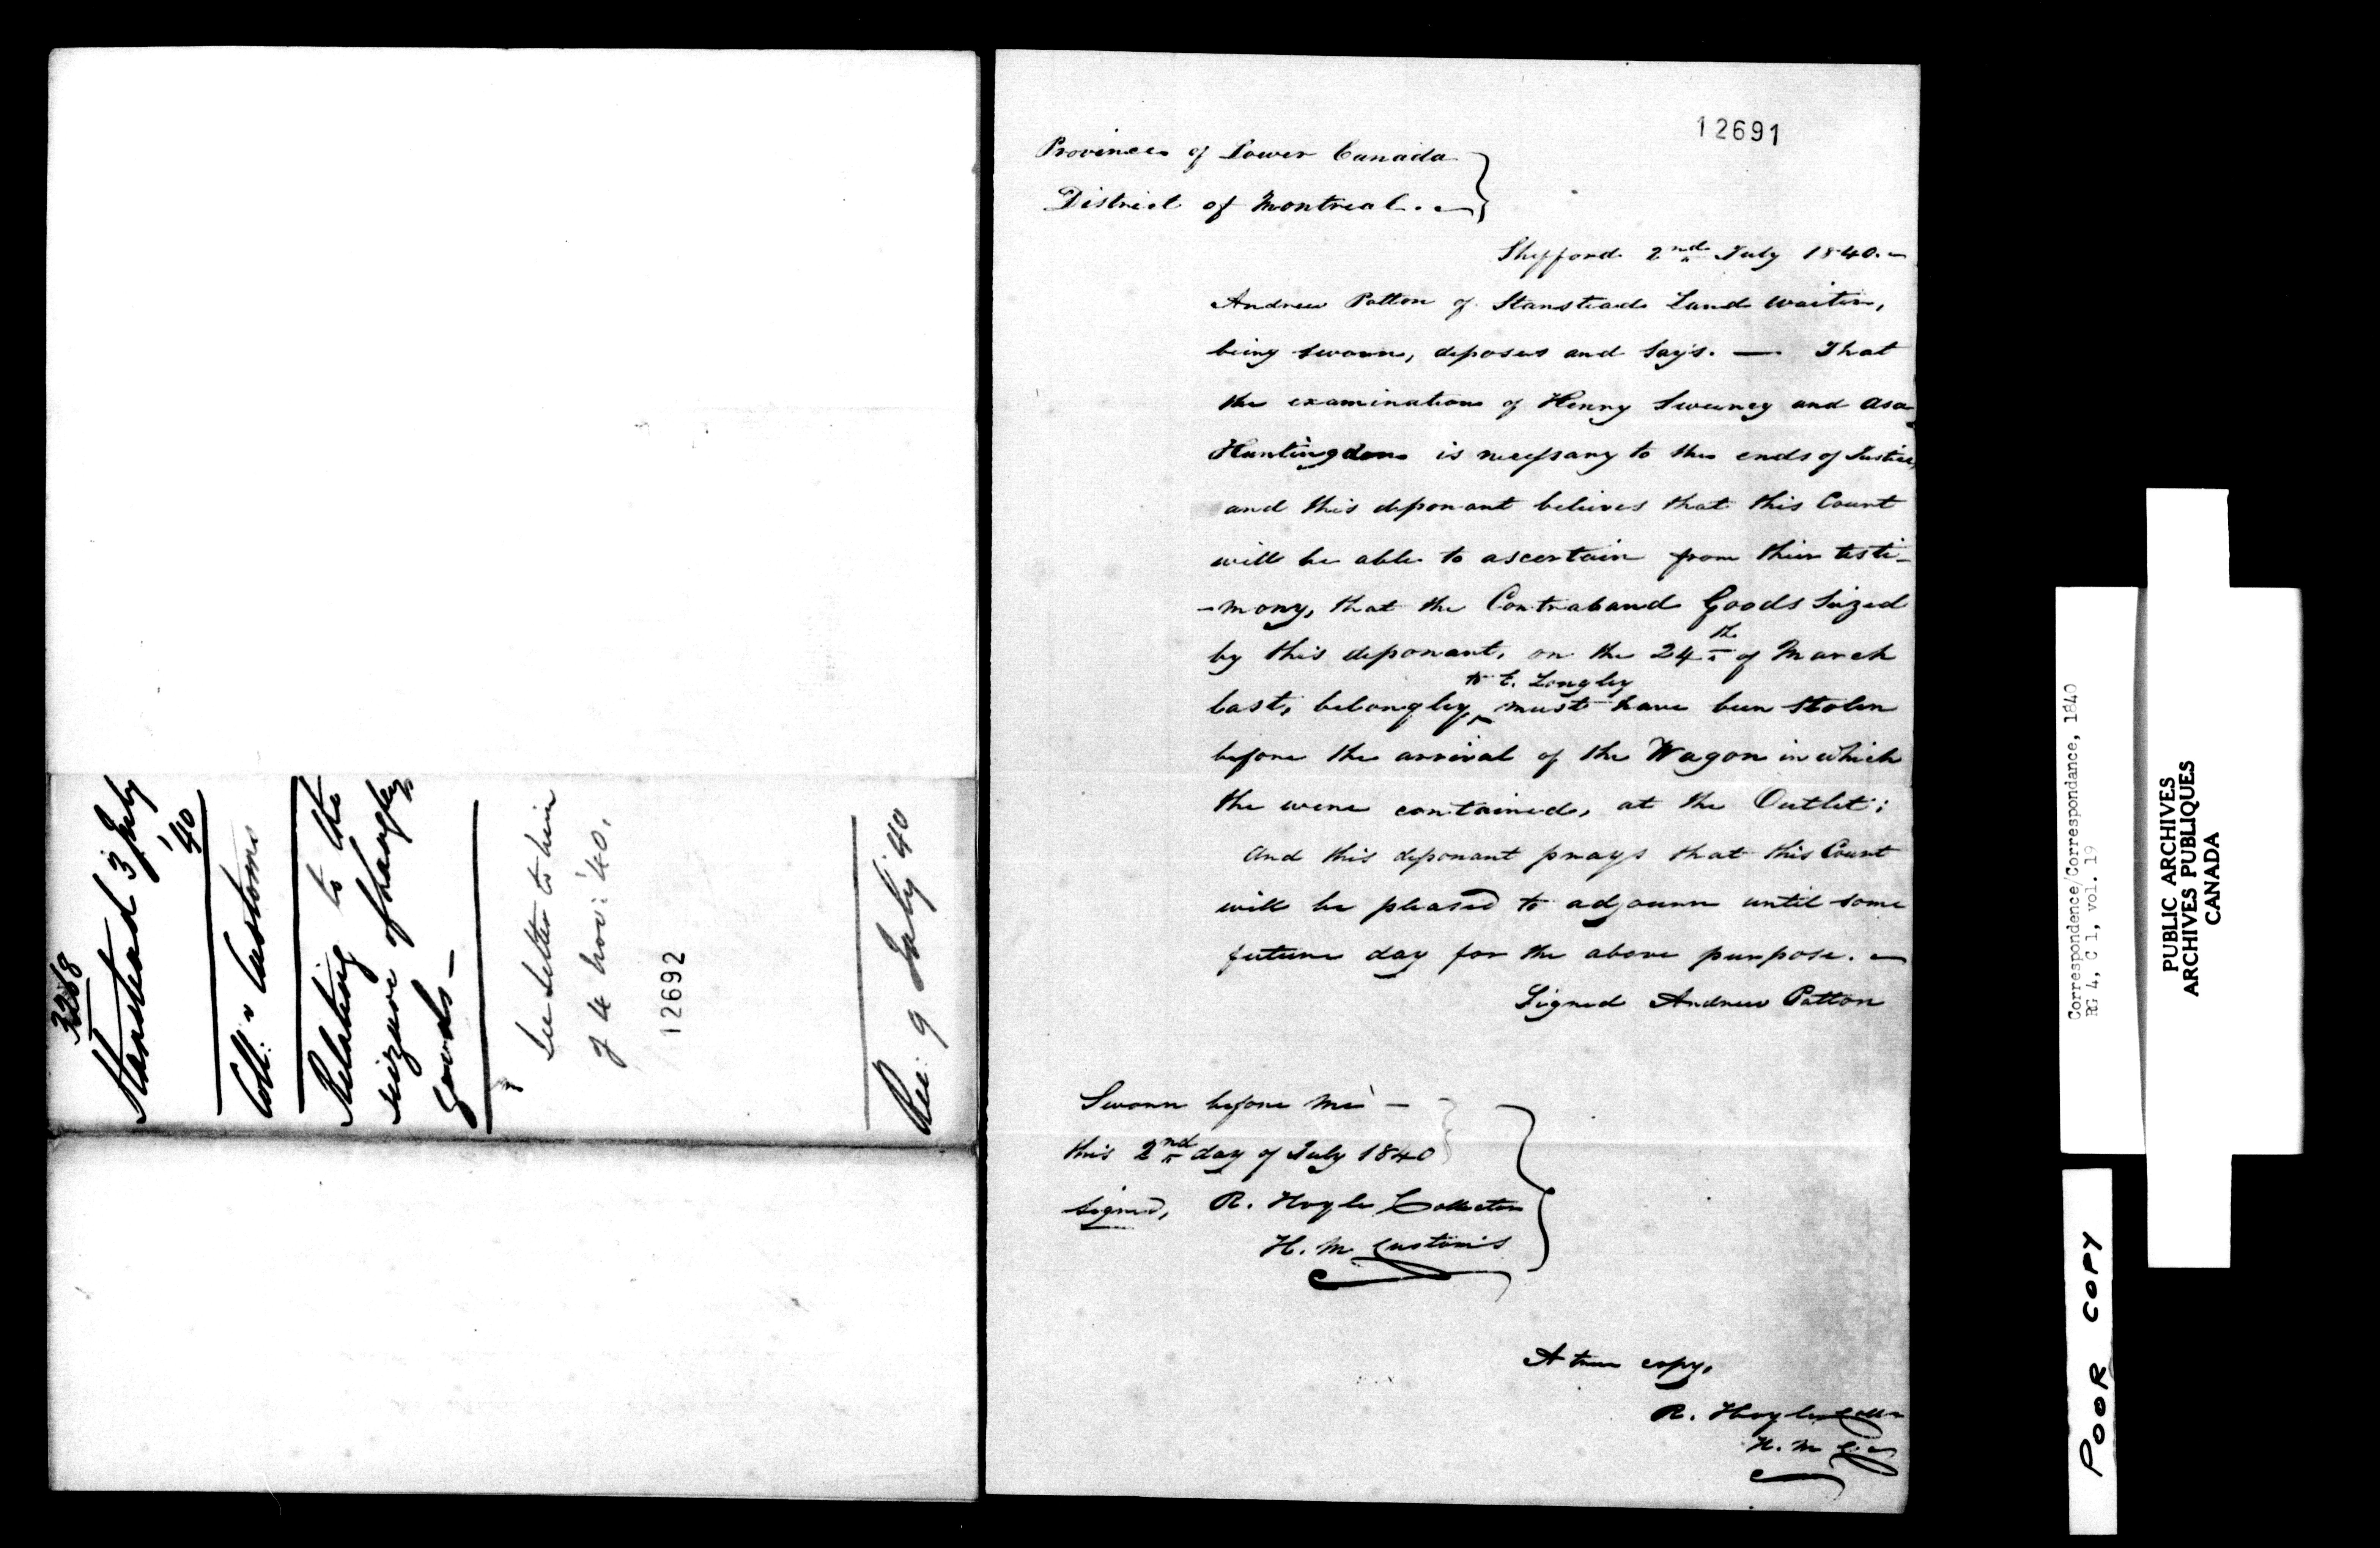 3268
Stanstead 3 July
'40
Coll: r Customs
Relating to the
seizure of Langley
goods –
See letter to him
of 4 Nov: '40.
12692
Rec: 9 July '40
12691
Province of Lower Canada
District of Montreal. –
Shefford 2nd July 1840. –
Andrew Patton of Stanstead Land Waiter,
being sworn, deposes and says. — That
the examination of Henry Sweeney and Asa
Huntingdon is necessary to the ends of Justice,
and this deponant believes that this Court
will be able to ascertain from thier testi-
-mony, that the Contraband Goods Seized
by this deponant, on the 24th of March
last, belongley to C. Longley must have been stolen
before the arrival of the Wagon in which
the were contained, at the Outlet;
And this deponant prays that this Court
will be pleased to adjourn until some
future day for the above purpose. –
Signed Andrew Patton
Sworn before me –
this 2nd day of July 1840
signed, R. Hoyle Collector
H. M Customs
A true copy,
R. Hoyle Coll
H. M C.
Correspondence/Correspondance, 1840
RG 4, C 1, vol. 19
PUBLIC ARCHIVES
ARCHIVES PUBLIQUES
CANADA
POOR COPY